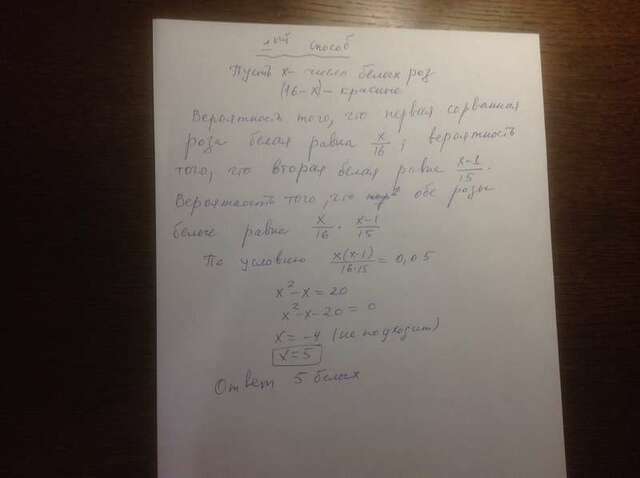 1ый способ
Пусть x - число белых роз
(16-x) - красные
Вероятность того, что первая сорванная
роза белая равна x/16; вероятность
того, что вторая белая равна x-1/15.
Вероятность того, что обе розы
белые равна x/16 · x-1/15
По условию x(x-1)/16·15 = 0,05
x²-x=20
x²-x-20=0
x=-4 (не подходит)
x=5
Ответ 5 белых